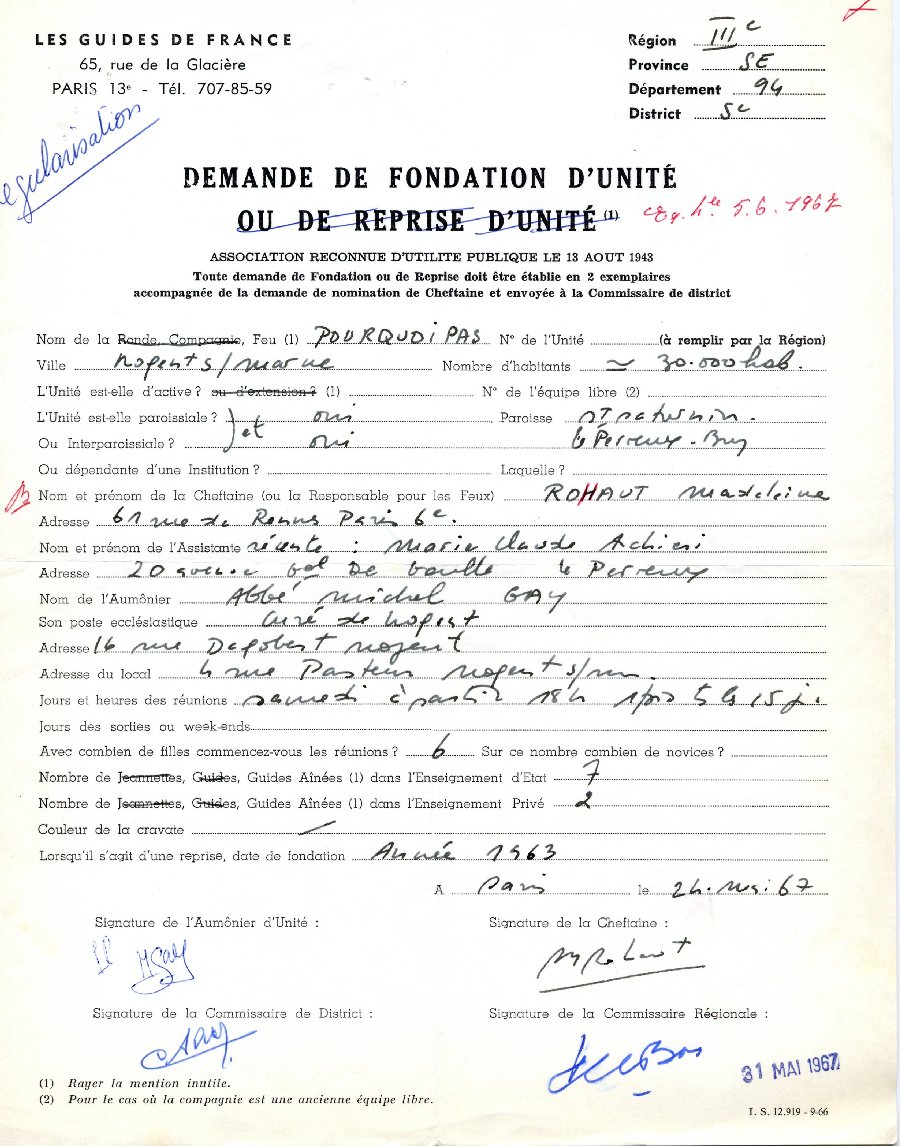 LES GUIDES DE FRANCE
65, rue de la Glacière
PARIS 13e - Tél. 707-85-59
Région IIIe
Province SE
Département 94
District 5e
Regularisation
DEMANDE DE FONDATION D'UNITÉ
OU DE REPRISE D'UNITÉ (1)
5.6.1967
ASSOCIATION RECONNUE D'UTILITE PUBLIQUE LE 13 AOUT 1943
Toute demande de Fondation ou de Reprise doit être établie en 2 exemplaires
accompagnée de la demande de nomination de Cheftaine et envoyée à la Commissaire de district
Nom de la Ronde, Compagnie, Feu (1) POURQUOI PAS N° de l'Unité (à remplir par la Région)
Ville Nogent s/marne Nombre d'habitants ≃ 30.000 hab.
L'Unité est-elle d'active ? ou d'extension ? (1) N° de l'équipe libre (2)
L'Unité est-elle paroissiale ? oui Paroisse St Saturnin.
et
Ou Interparoissiale ? oui le Perreux - Bry
Ou dépendante d'une Institution ? Laquelle ?
Nom et prénom de la Cheftaine (ou la Responsable pour les Feux) ROHAUT Madeleine
Adresse 61 rue de Rennes Paris 6e.
Nom et prénom de l'Assistante : Marie Claude
Adresse 20 le Perreux
Nom de l'Aumônier Abbé Michel GAY
Son poste ecclésiastique Curé de Nogent
Adresse 16 rue Dagobert Nogent
Adresse du local 4 rue Pasteur Nogent s/m.
Jours et heures des réunions samedi à partir 18h 1 fois ts les 15 j.
Jours des sorties ou week-ends
Avec combien de filles commencez-vous les réunions ? 6 Sur ce nombre combien de novices ?
Nombre de Jeannettes, Guides, Guides Aînées (1) dans l'Enseignement d'Etat 7
Nombre de Jeannettes, Guides, Guides Aînées (1) dans l'Enseignement Privé 2
Couleur de la cravate
Lorsqu'il s'agit d'une reprise, date de fondation Année 1963
A Paris le 24. mai 67
Signature de l'Aumônier d'Unité :
Signature de la Cheftaine :
M Gay
M Rohaut
Signature de la Commissaire de District :
Signature de la Commissaire Régionale :
31 MAI 1967
(1) Rayer la mention inutile.
(2) Pour le cas où la compagnie est une ancienne équipe libre.
I. S. 12.919 - 9-66